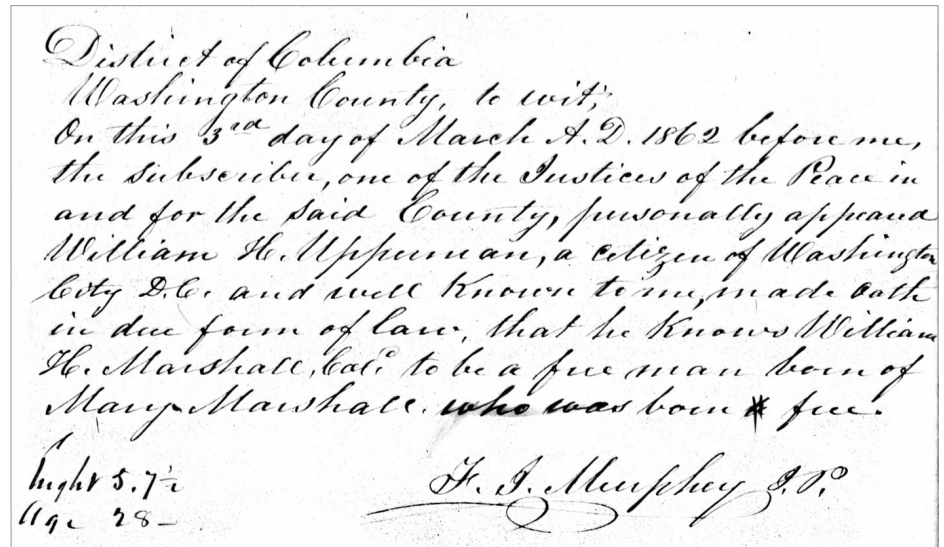 District of Columbia
Washington County, to wit;
On this 3rd day of March A.D. 1862 before me,
the subscriber, one of the Justices of the Peace in
and for the said County, personally appeared
William H. Upperman, a citizen of Washington
City D.C. and well Known to me, made oath
in due form of law, that he Knows William
H. Marshall, Cold. to be a free man born of
Mary Marshall. who was born free.
hight 5.7½
Age 28 -
F. I. Murphey J.P.